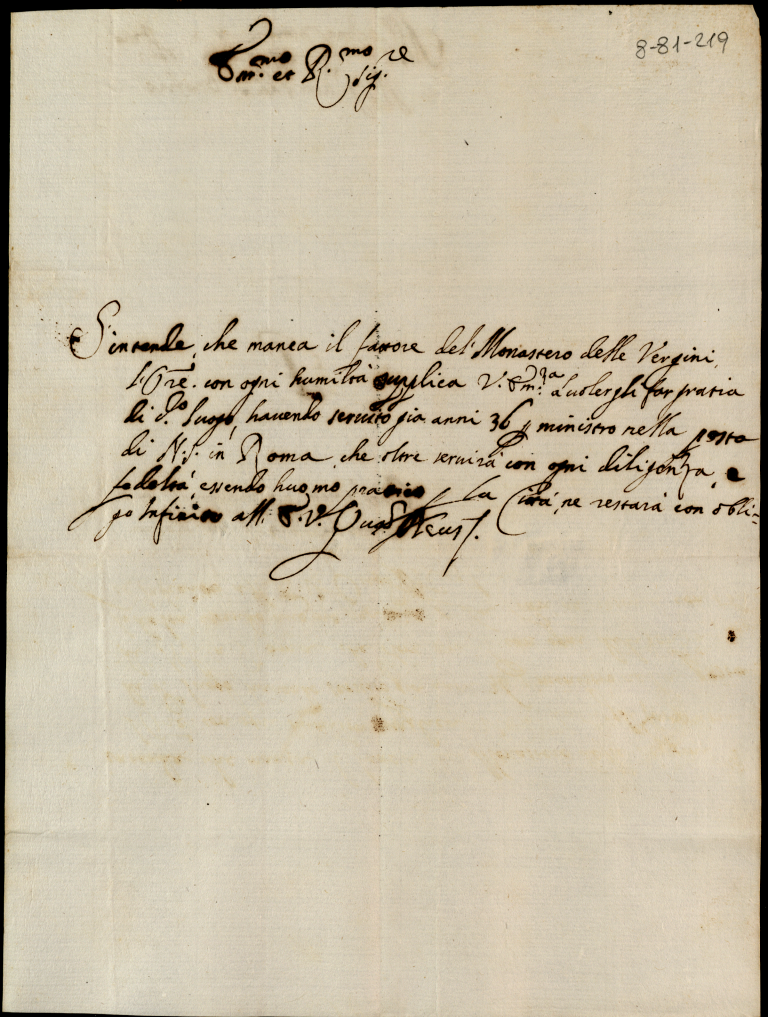 8-81-219
Em.mo et R.mo Sig.re
S'intende, che manca il fattore del Monastero delle Vergini,
l'Ore. con ogni humiltà supplica V. Em.za a volergli far gratia
di d.o luogo, havendo servito già anni 36 p ministro nella posta
di N. S. in Roma, che oltre servirà con ogni diligenza, e
fedeltà, essendo huomo pratico p la Città, ne restarà con obli-
go infinito all' E. V. Quas Deus.